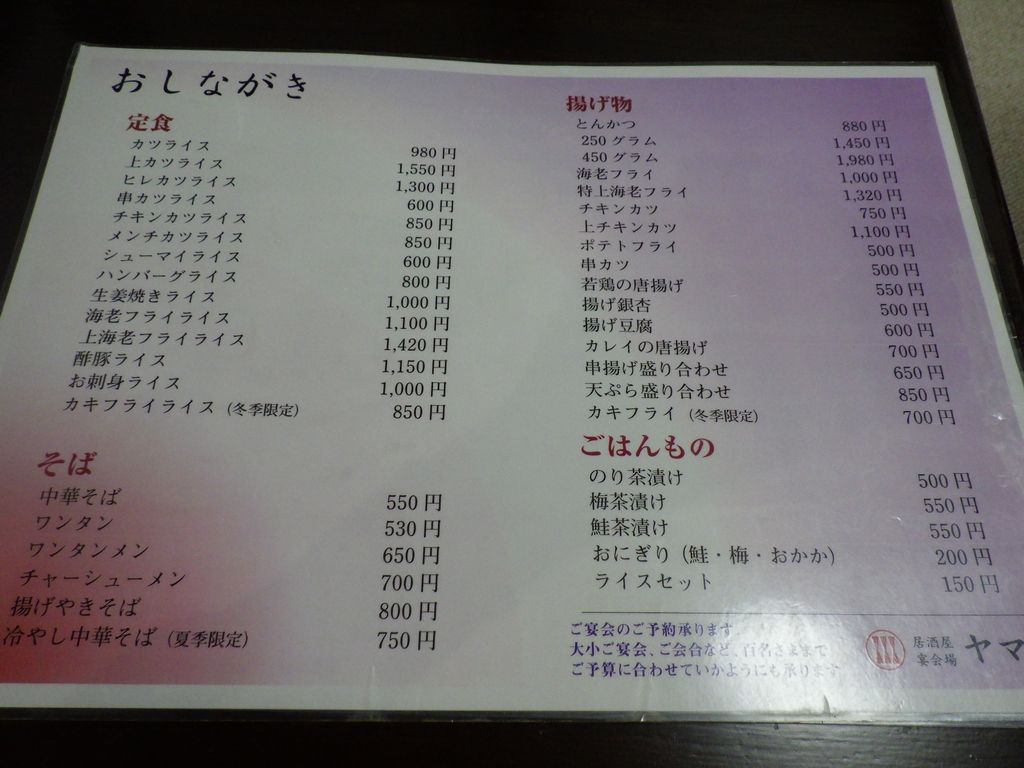 おしながき
定食
カツライス 980円
上カツライス 1,550円
ヒレカツライス 1,300円
串カツライス 600円
チキンカツライス 850円
メンチカツライス 850円
シューマイライス 600円
ハンバーグライス 800円
生姜焼きライス 1,000円
海老フライライス 1,100円
上海老フライライス 1,420円
酢豚ライス 1,150円
お刺身ライス 1,000円
カキフライライス（冬季限定） 850円
そば
中華そば 550円
ワンタン 530円
ワンタンメン 650円
チャーシューメン 700円
揚げやきそば 800円
冷やし中華そば（夏季限定） 750円
揚げ物
とんかつ 880円
250グラム 1,450円
450グラム 1,980円
海老フライ 1,000円
特上海老フライ 1,320円
チキンカツ 750円
上チキンカツ 1,100円
ポテトフライ 500円
串カツ 500円
若鶏の唐揚げ 550円
揚げ銀杏 500円
揚げ豆腐 600円
カレイの唐揚げ 700円
串揚げ盛り合わせ 650円
天ぷら盛り合わせ 850円
カキフライ（冬季限定） 700円
ごはんもの
のり茶漬け 500円
梅茶漬け 550円
鮭茶漬け 550円
おにぎり（鮭・梅・おかか） 200円
ライスセット 150円
ご宴会のご予約承ります
大小ご宴会、ご会合など、百名さままで
ご予算に合わせていかようにも承ります
居酒屋
宴会場 ヤマ